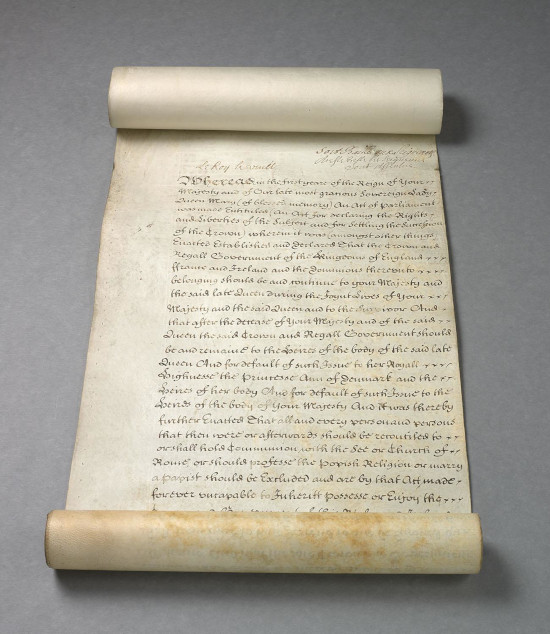 Le Roy le veult
Soit baille aux
Whereas in the first yeare of the Reign of Your
Majesty and of Our late most gracious Sovereign Lady
Queen Mary (of blessed memory) An Act of Parliament
was made Entituled An Act for declaring the Rights
and Liberties of the Subject and for Setling the Succession
of the Crown wherein it was amongst other things
Enacted Established and Declared That the Crown and
Regall Government of the Kingdoms of England
ffrance and Ireland and the Dominions thereunto
belonging should be and continue to your Majesty and
the said late Queen during the Joynt Lives of Your
Majesty and the said Queen and to the Survivor And
that after the decease of Your Majesty and of the said
Queen the said Crown and Regall Government should
be and remaine to the Heires of the body of the said late
Queen And for default of such Issue to her Royall
Highnesse the Princesse Ann of Denmark and the
Heires of her body And for default of such Issue to the
Heires of the body of Your Majesty And it was thereby
further Enacted That all and every person and persons
that then were or afterwards should be reconciled to
or shall hold Communion with the See or Church of
Rome or should professe the Popish Religion or marry
a papist should be Excluded and are by that Act made
for ever uncapable to Inheritt Possesse or Enjoy the